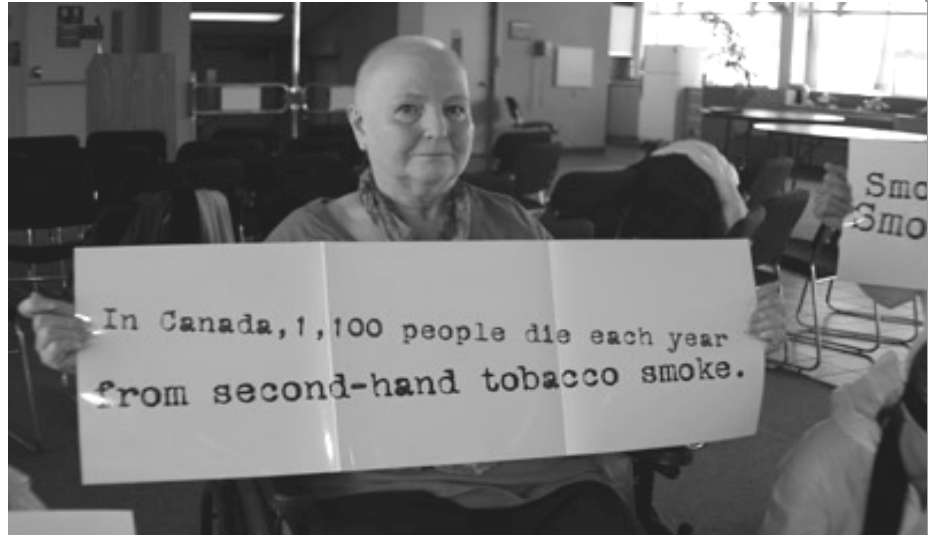 In Canada, 1,100 people die each year
from second-hand tobacco smoke.
Smo
Smo